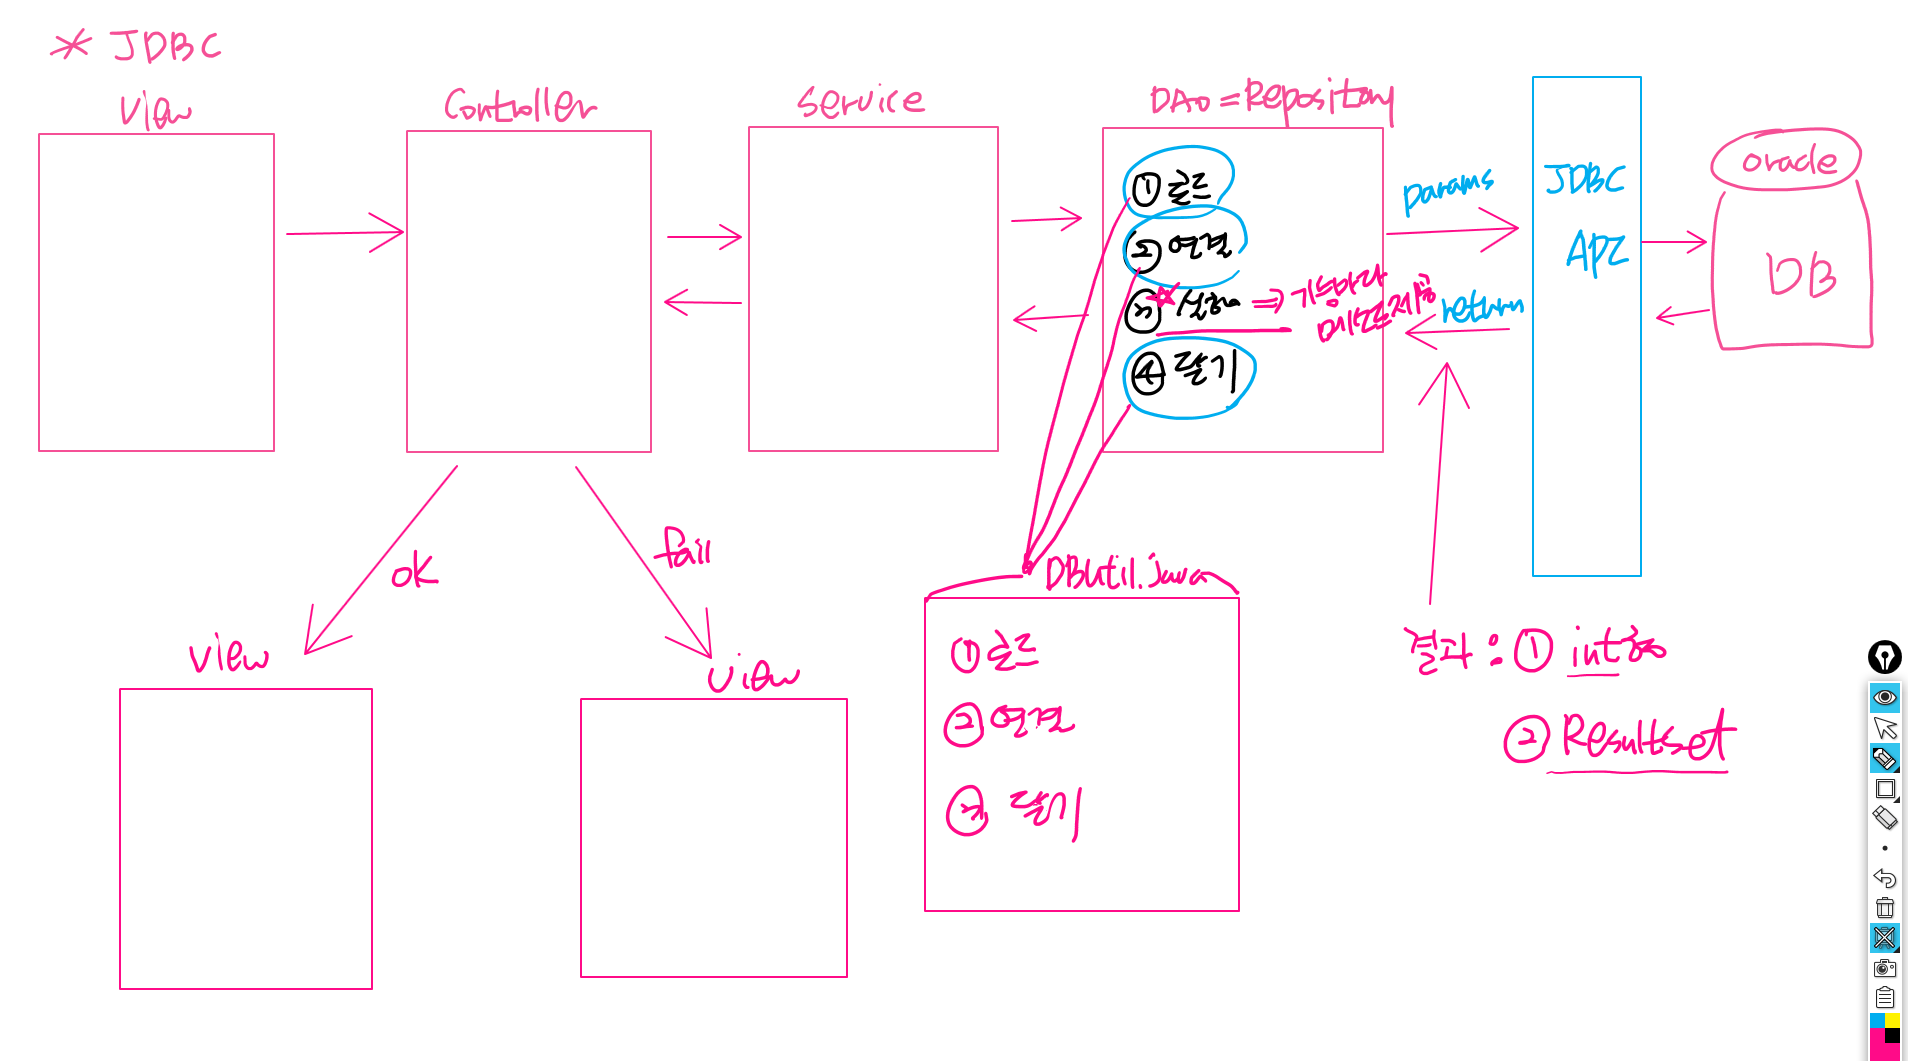 * JDBC
view
Controller
service
DAO = Repository
① 로드
② 연결
③ 실행 => 기능마다
메소드 제공
④ 닫기
params
return
JDBC
API
oracle
DB
ok
fail
view
view
DBUtil.java
① 로드
② 연결
③ 닫기
결과 : ① int형
② Resultset